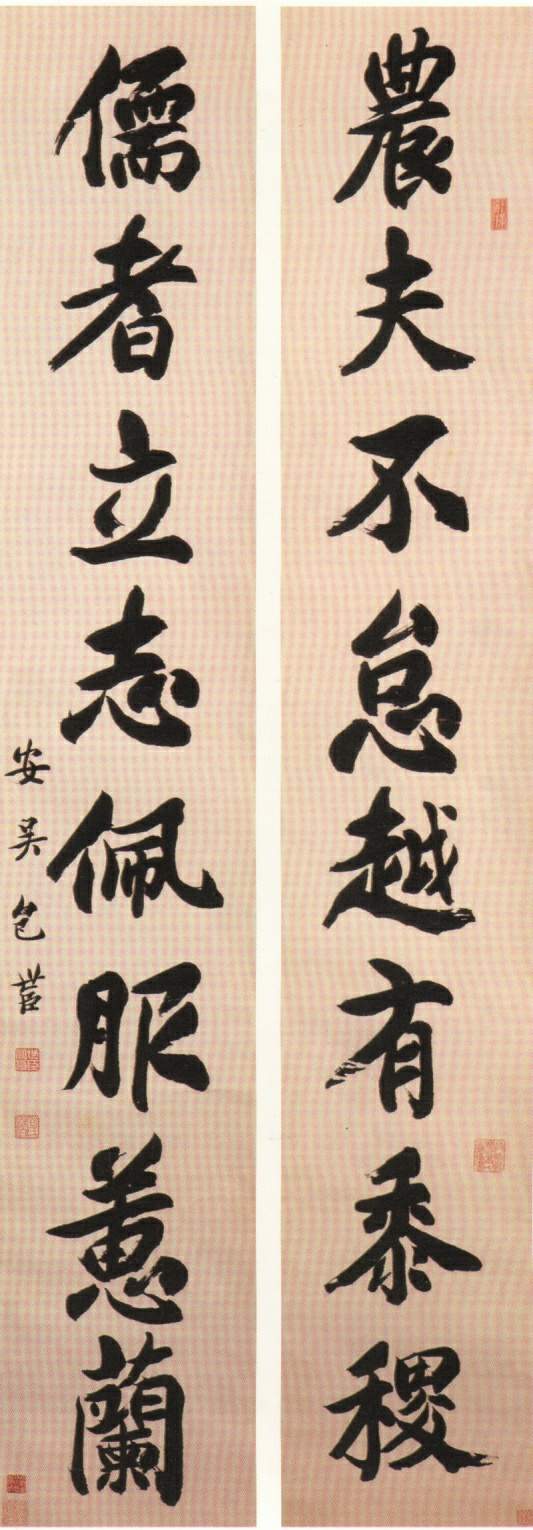 農夫不怠越有黍稷
儒者立志佩服蕙蘭
安吴包世臣